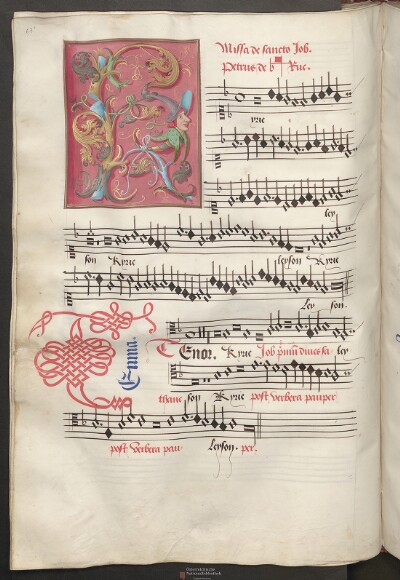 Missa de sancto Job.
Petrus de Rue.
kyrie
ley
son Kyrie leyson Kyrie
Ley son.
Tenor. Kyrie Job ley
son Kyrie post verbera pauper
post verbera pau Leyson. per.